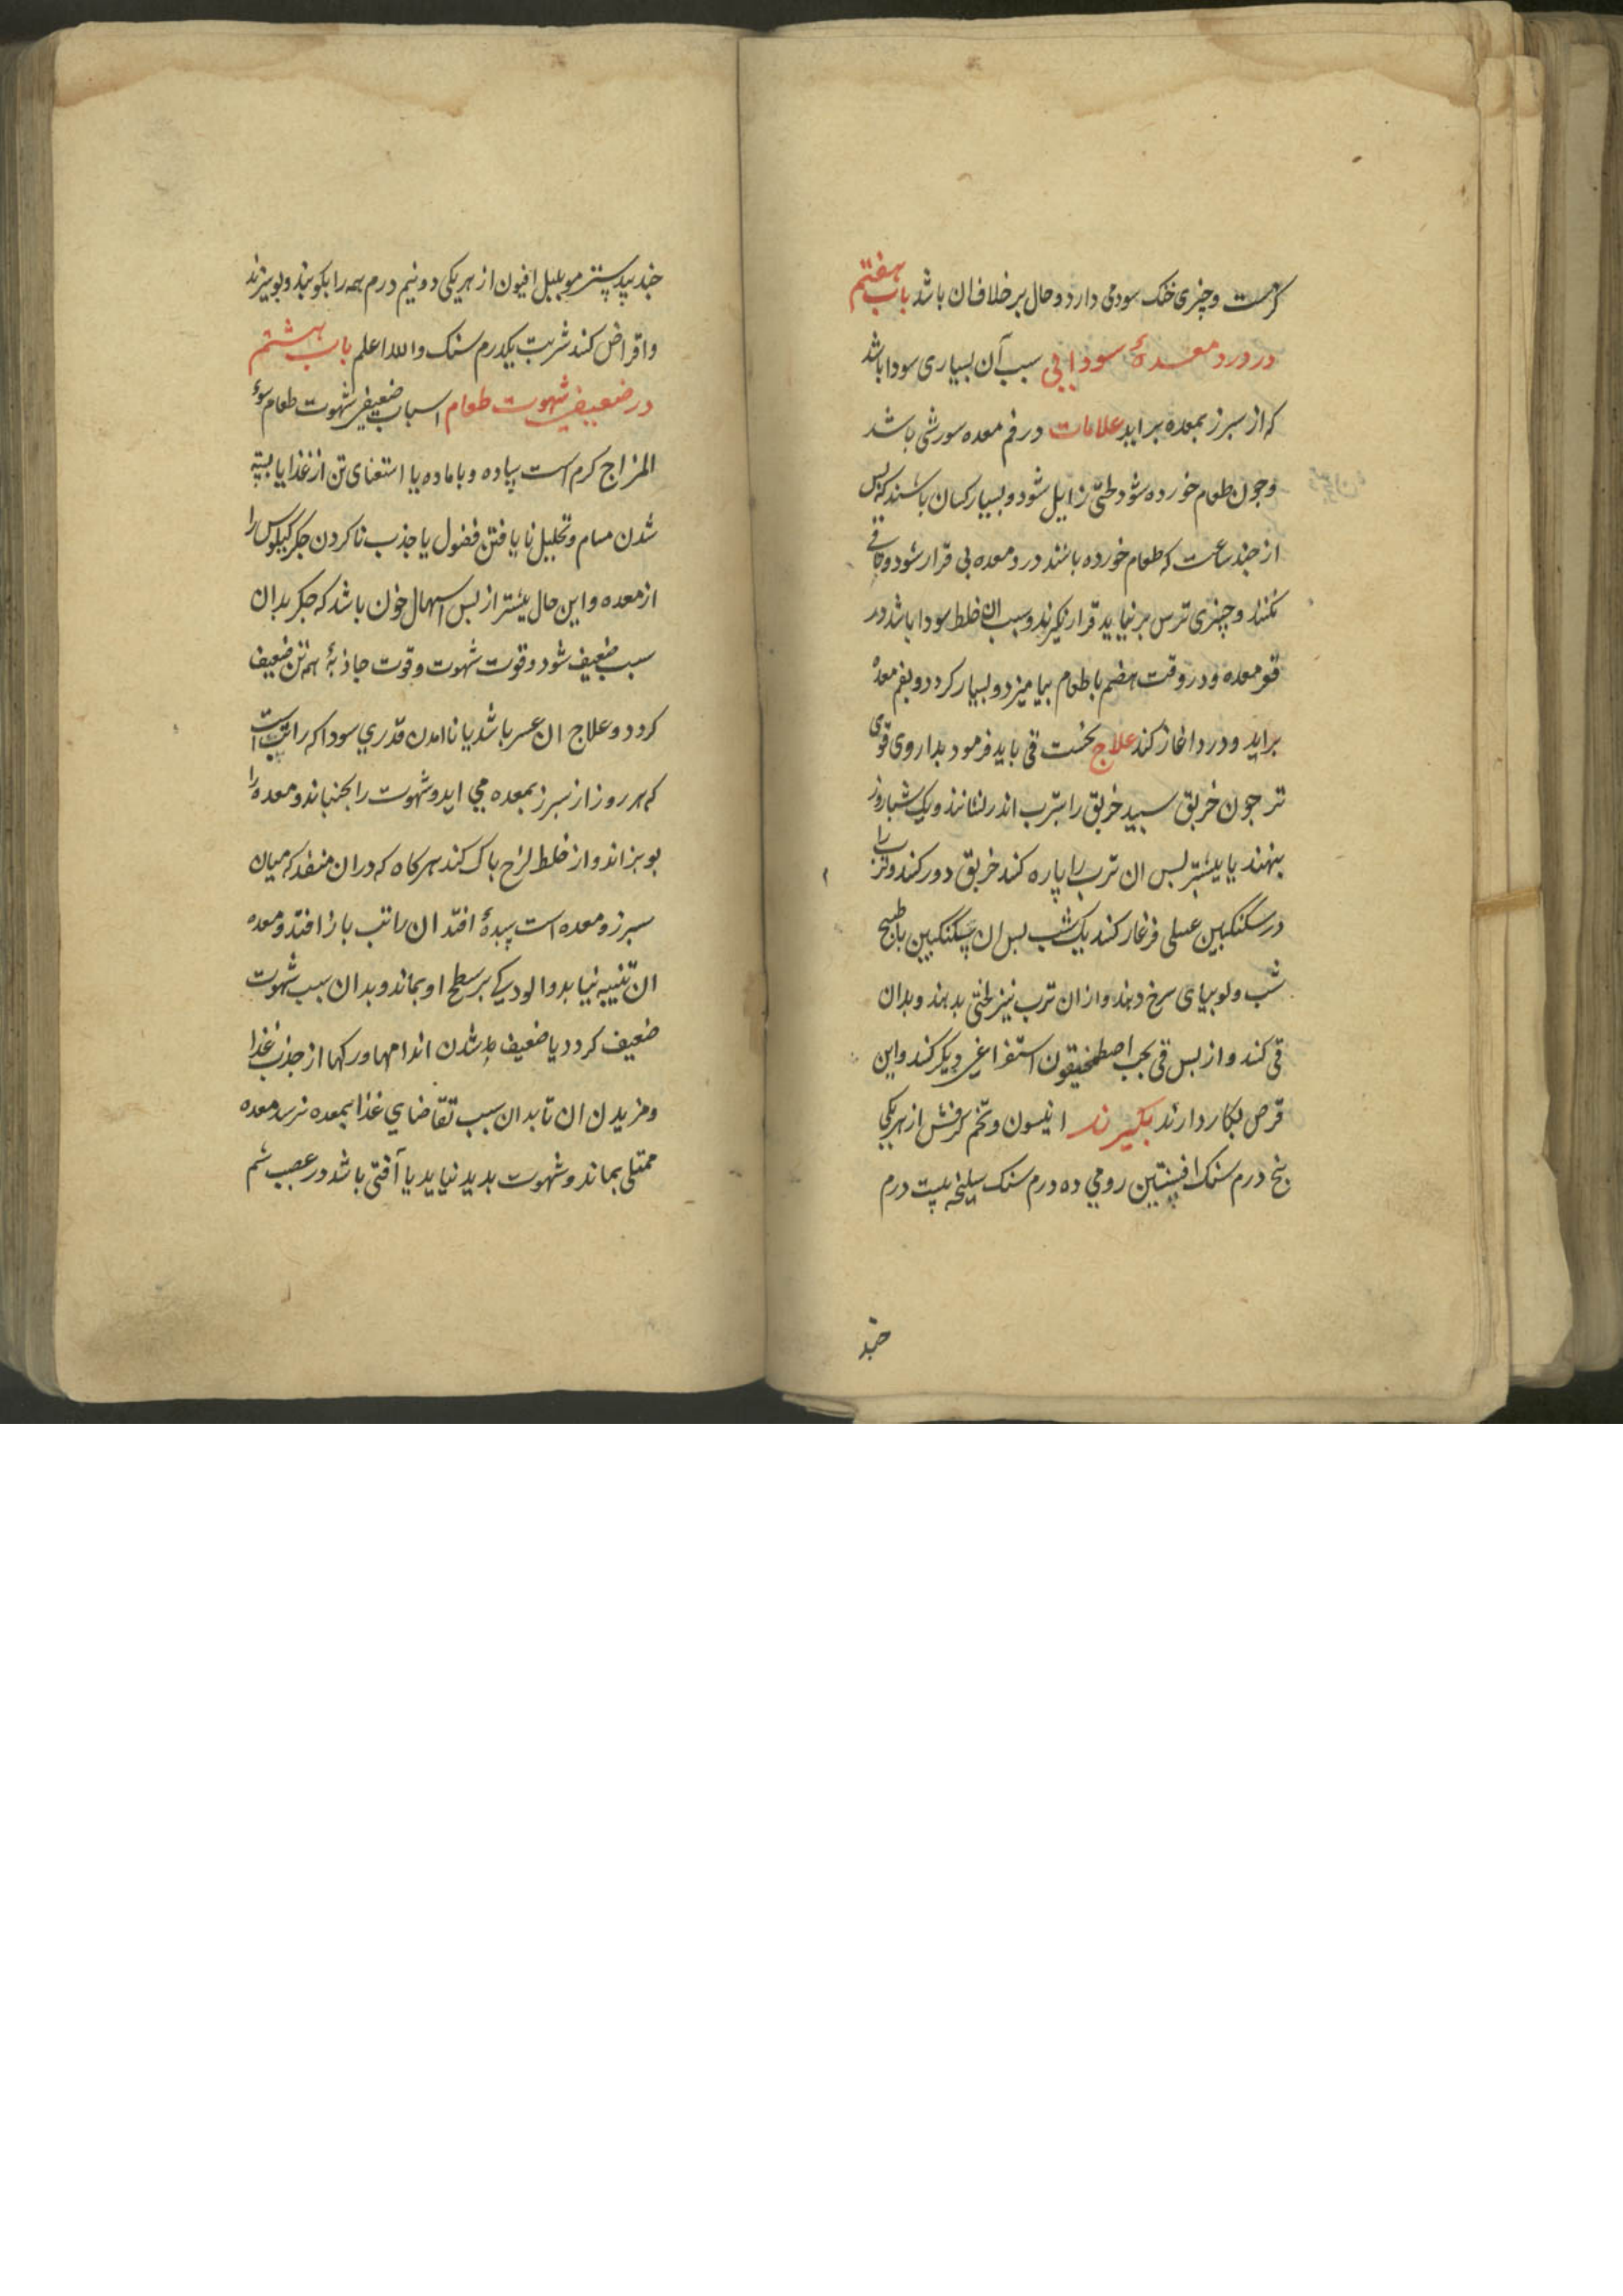 کرمست و چیزی خنک سود می دارد و حال بر خلاف ان باشد باب هفتم
در درد معدهٔ سودایی سبب آن بسیاری سودا باشد
که از سبرز بمعده براید علامات در فم معده سورشی باشد
و جون طعام خورده شود لختی زایل شود و بسیار کسان باشند که بس
از جند ساعت که طعام خورده باشند درد معده بی قرار شود و تا قی
نکنند و چیزی ترس بر نیاید قرار نکیرند و سبب ان خلط سودا باشد در
قعر معده و در وقت هضم با طعام بیامیزد و بسیار کردد و بفم معدهٔ
براید و درد اغاز کند علاج نخست قی باید فرمود بداروی قوی
تر جون خربق سبید خربق را بترب اندر نشانند و یک شباروز
بنهند یا بیشتر بس ان ترب را پاره کند خربق دور کند و ترب را
در سکنکبین عسلی فرغار کند یک شب بس ان سکنکبین با طبیخ
شب و لوبیای سرخ دهند و از ان ترب نیز لختی بدهند و بدان
قی کند و از بس قی بحب اصطمخیقون استفراغی دیکر کند و این
قرص بکار دارند بکیرند انیسون و تخم کرفش از هر یکی
پنج درم سنک افسنتین رومی ده درم سنک سلیخه بیست درم
جند
جند بیدستر مو بلبل افیون از هر یکی دو نیم درم همه را بکوبند و بوبیزند
و اقراض کند شربت یکدرم سنک و الله اعلم باب هشتم
در ضعیفی شهوت طعام اسباب ضعیفی شهوت طعام سوٴ
المزاج کرم است بیاده و با ماده یا استغنای تن از غذا یا بسته
شدن مسام و تحلیل نا یافتن فضول یا جذب نا کردن جکر کیلوس را
از معده و این حال بیشتر از بس اسهال خون باشد که جکر بدان
سبب ضعیف شود و قوت شهوت و قوت جاذبهٔ همه تن ضعیف
کردد و علاج ان عسر باشد یا نا امدن قدری سودا که راتب است
که هر روز از سبرز بمعده می اید و شهوت را بجنباند و معده را
بوبزاند و از خلط لزج باک کند هر کاه که در ان منفذ که میان
سبرز و معده است سدهٔ افتد ان راتب باز افتد و معده
ان تنبیه نیابد و الودیکی بر سطح او بماند و بدان سبب شهوت
ضعیف کردد یا ضعیف شدن اندامها و رکها از جذب غذا
و مزیدن ان تا بدان سبب تقاضای غذا بمعده نرسد و معده
ممتلی بماند و شهوت بدید نیاید یا آفتی باشد در عصب شم